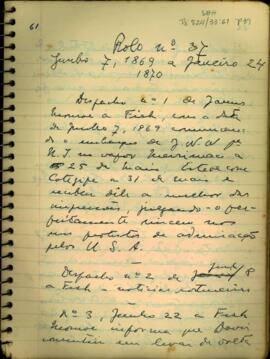 61
Rolo nº 37
Junho 7, 1869 a Janeiro 24
1870
Despacho nº 1 de James
Monroe a Fish, com a data
de junho 7, 1869 comunican-
do o embarque de J. W. W. pª
N. Y. no vapor Merrimac a
25 de maio. Esteve com
Cotegipe a 31 de maio e
recebeu dele a melhor das
impressões, julgando-o per-
feitamente sincero nos
seus protestos de admiração
pelos U.S.A.
Despacho nº 2 de Junho 8
a Fish - notícias rotineiras
Nº 3, Junho 22 a Fish
Monroe informa que
consentiu em levar de volta